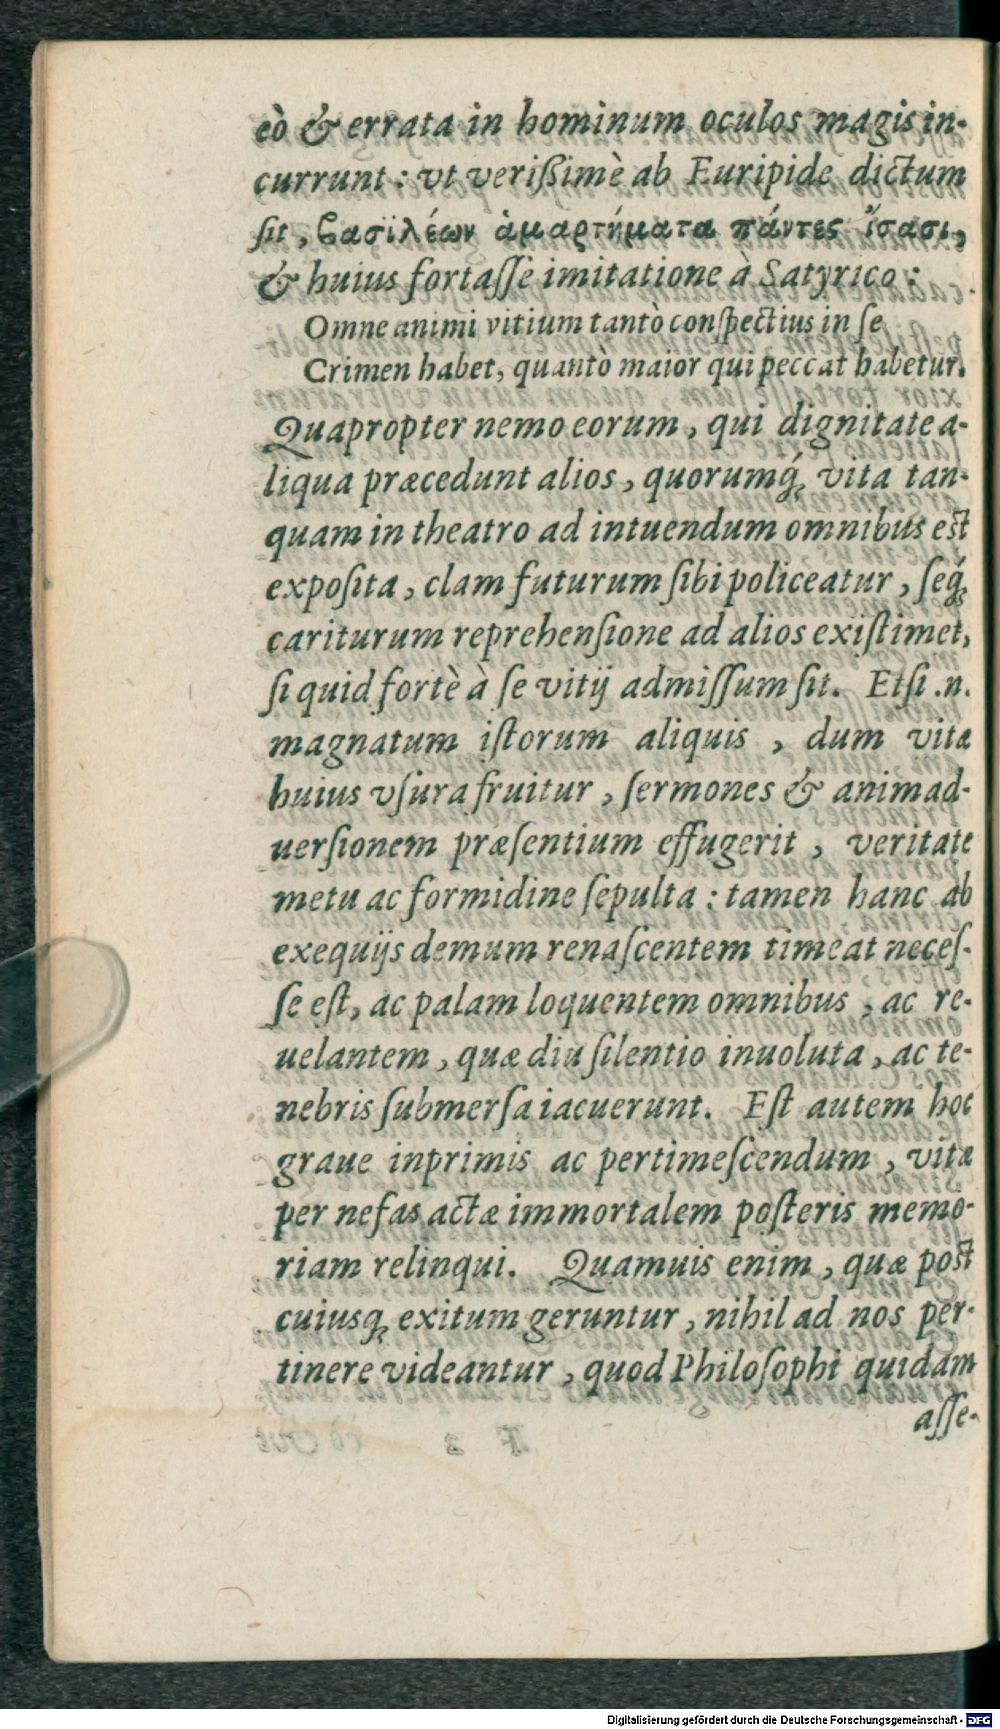 eò & errata in hominum oculos magis in-
currunt: vt verißimè ab Euripide dictum
sit, βασϊλέων ἁμαρτήματα πάντες ἴσασι,
& huius fortassè imitatione à Satyrico:
Omne animi vitium tantò conspectius in se
Crimen habet, quantò maior qui peccat habetur.
Quapropter nemo eorum, qui dignitate a-
liqua præcedunt alios, quorumq́; vita tan-
quam in theatro ad intuendum omnibus est
exposita, clam futurum sibi policeatur, seq́;
cariturum reprehensione ad alios existimet,
si quid fortè à se vitij admissum sit. Etsi .n.
magnatum istorum aliquis, dum vitæ
huius vsura fruitur, sermones & animad-
uersionem præsentium effugerit, veritate
metu ac formidine sepulta: tamen hanc ab
exequijs demum renascentem timeat neces-
se est, ac palam loquentem omnibus, ac re-
uelantem, quæ diu silentio inuoluta, ac te-
nebris submersa iacuerunt. Est autem hoc
graue inprimis ac pertimescendum, vitæ
per nefas actæ immortalem posteris memo-
riam relinqui. Quamuis enim, quæ post
cuiusq; exitum geruntur, nihil ad nos per-
tinere videantur, quod Philosophi quidam
asse-
Digitalisierung gefördert durch die Deutsche Forschungsgemeinschaft - DFG